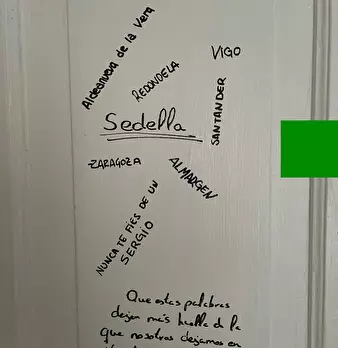 Aldeanueva de la Vera
REDONDELA
VIGO
SANTANDER
Sedella
ZARAGOZA
ALMARGEN
NUNCA TE FIES DE UN
SERGIO
Que estas palabras
dejen más huella de la
que nosotros dejamos en